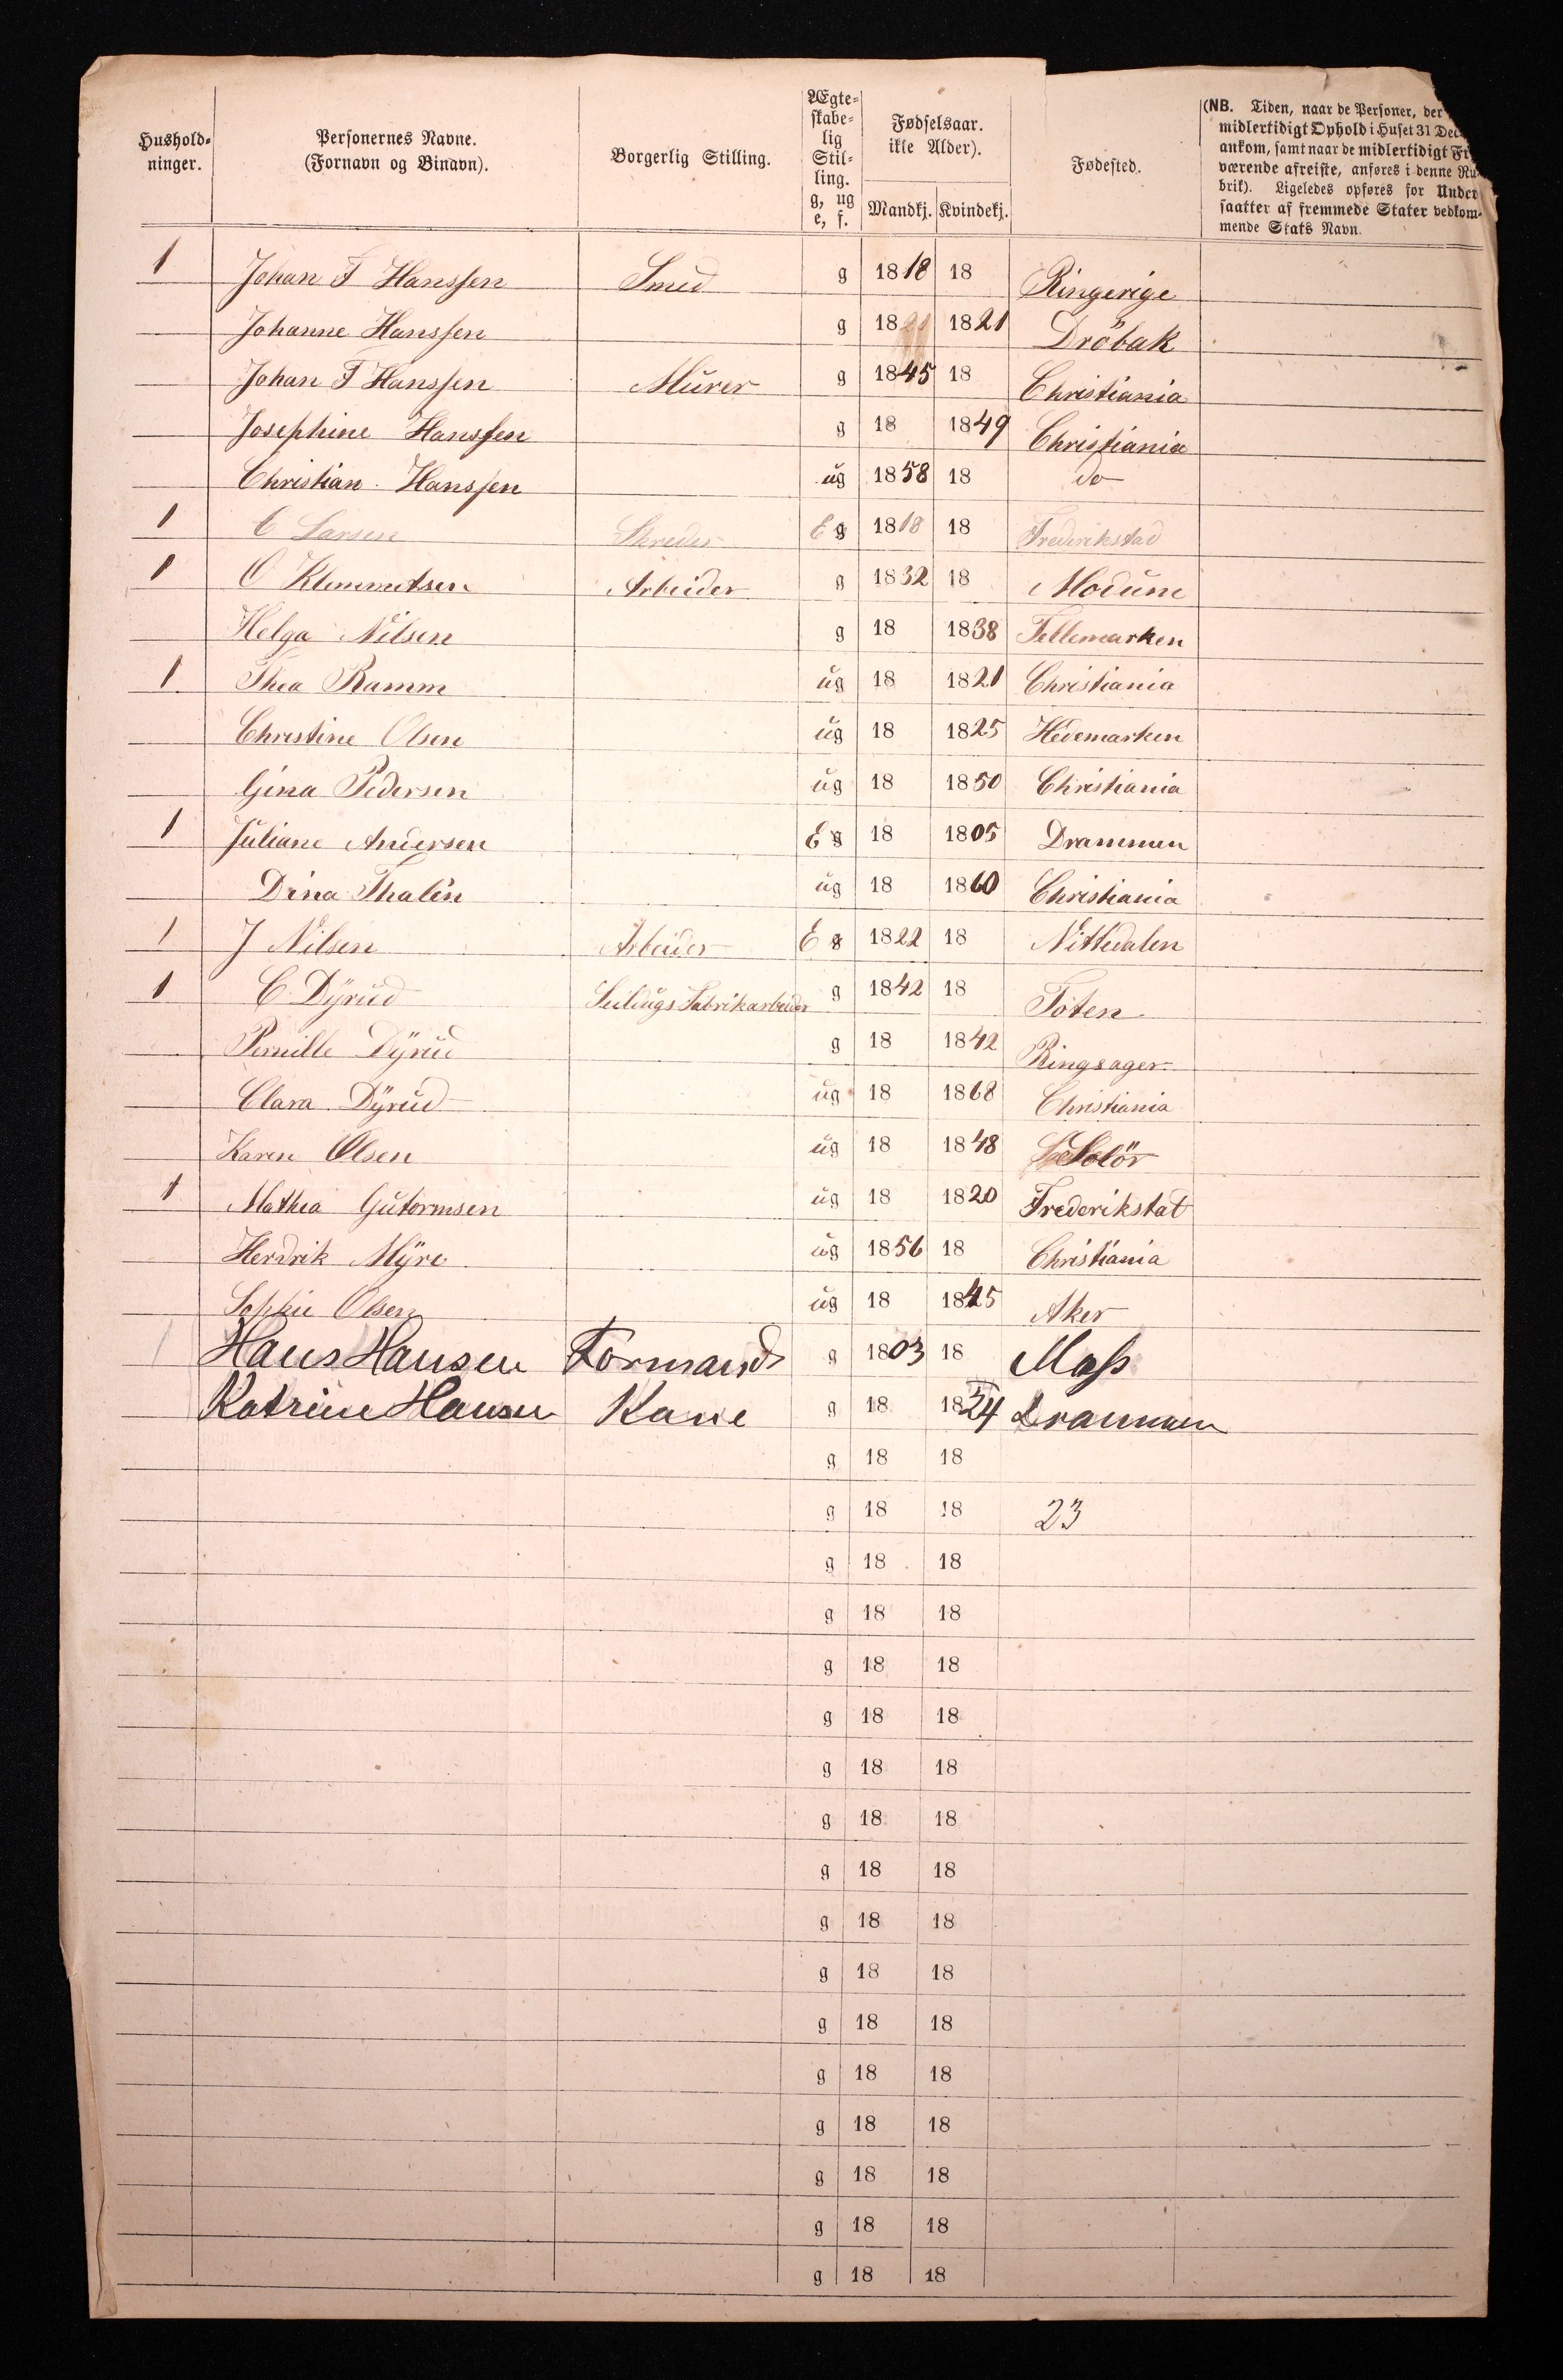 Hushold-
ninger.
Personernes Navne.
(Fornavn og Binavn).
Borgerlig Stilling.
Ægte-
skabe-
lig
Stil-
ling.
g, ug
e, f.
Fødselsaar.
ikke Alder).
Mandkj. Kvindekj.
Fødested.
(NB. Tiden, naar de Personer, der
midlertidigt Ophold i Huset 31 Dec
ankom, samt naar de midlertidigt Fr
værende afreiste, anføres i denne Ru-
brik). Ligeledes opføres for Under
saatter af fremmede Stater vedkom-
mende Stats Navn.
1 Johan F Hanssen Smed g 1818 18 Ringerige
Johanne Hanssen g 1821 1821 Dröbak
Johan F Hanssen Murer g 1845 18 Christiania
Josephine Hanssen g 18 1849 Christiania
Christian Hanssen ug 1858 18 do
1 C Larsen Skreder E g 1818 18 Frederikstad
1 O Klemmetsen Arbeider g 1832 18 Modum
Helga Nilsen g 18 1838 Tellemarken
1 Thea Ramm ug 18 1821 Christiania
Christine Olsen ug 18 1825 Hedemarken
Gina Pedersen ug 18 1850 Christiania
1 Juliane Andersen E g 18 1805 Drammen
Dina Thalin ug 18 1860 Christiania
1 J Nilsen Arbeider E g 1822 18 Nittedalen
1 C Dÿrud Seildugs Fabrikarbeider g 1842 18 Toten
Pernille Dÿrud g 18 1842 Ringsager
Clara Dÿrud ug 18 1868 Christiania
Karen Olsen ug 18 1848 Solör
1 Mathea Gutormsen ug 18 1820 Frederikstat
Hendrik Mÿre ug 1856 18 Christiania
Sophie Olsen ug 18 1845 Aker
1 Hans Hansen Formand g 1803 18 Moss
Katrine Hansen Kone g 18 1824 Drammen
g 18 18
g 18 18 23
g 18 18
g 18 18
g 18 18
g 18 18
g 18 18
g 18 18
g 18 18
g 18 18
g 18 18
g 18 18
g 18 18
g 18 18
g 18 18
g 18 18
g 18 18